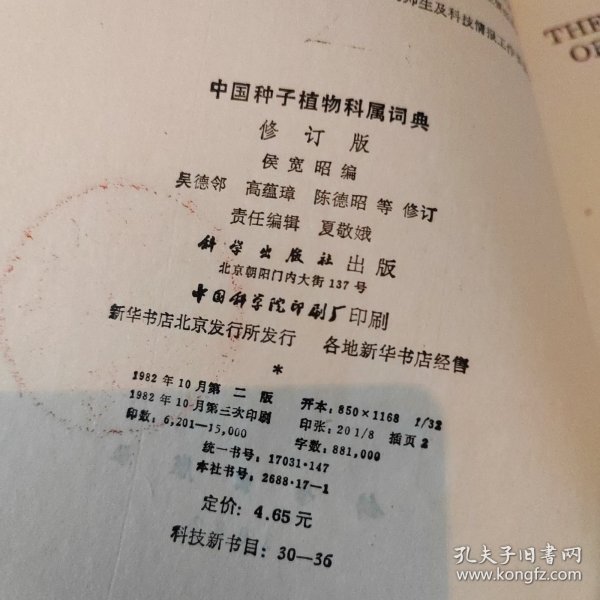 师生及科技情报工作
THE
OF
中国种子植物科属词典
修订版
侯宽昭编
吴德邻 高蕴璋 陈德昭 等 修订
责任编辑 夏敬娥
科学出版社 出版
北京朝阳门内大街 137 号
中国科学院印刷厂印刷
新华书店北京发行所发行 各地新华书店经售
*
1982 年 10 月 第 二 版 开本：850×1168 1/32
1982 年 10 月第三次印刷 印张：20 1/8 插页 2
印数：6,201—15,000 字数：881,000
统一书号：17031·147
本社书号：2688·17—1
定价：4.65 元
科技新书目：30—36
孔夫子旧书网
www.kongfz.com